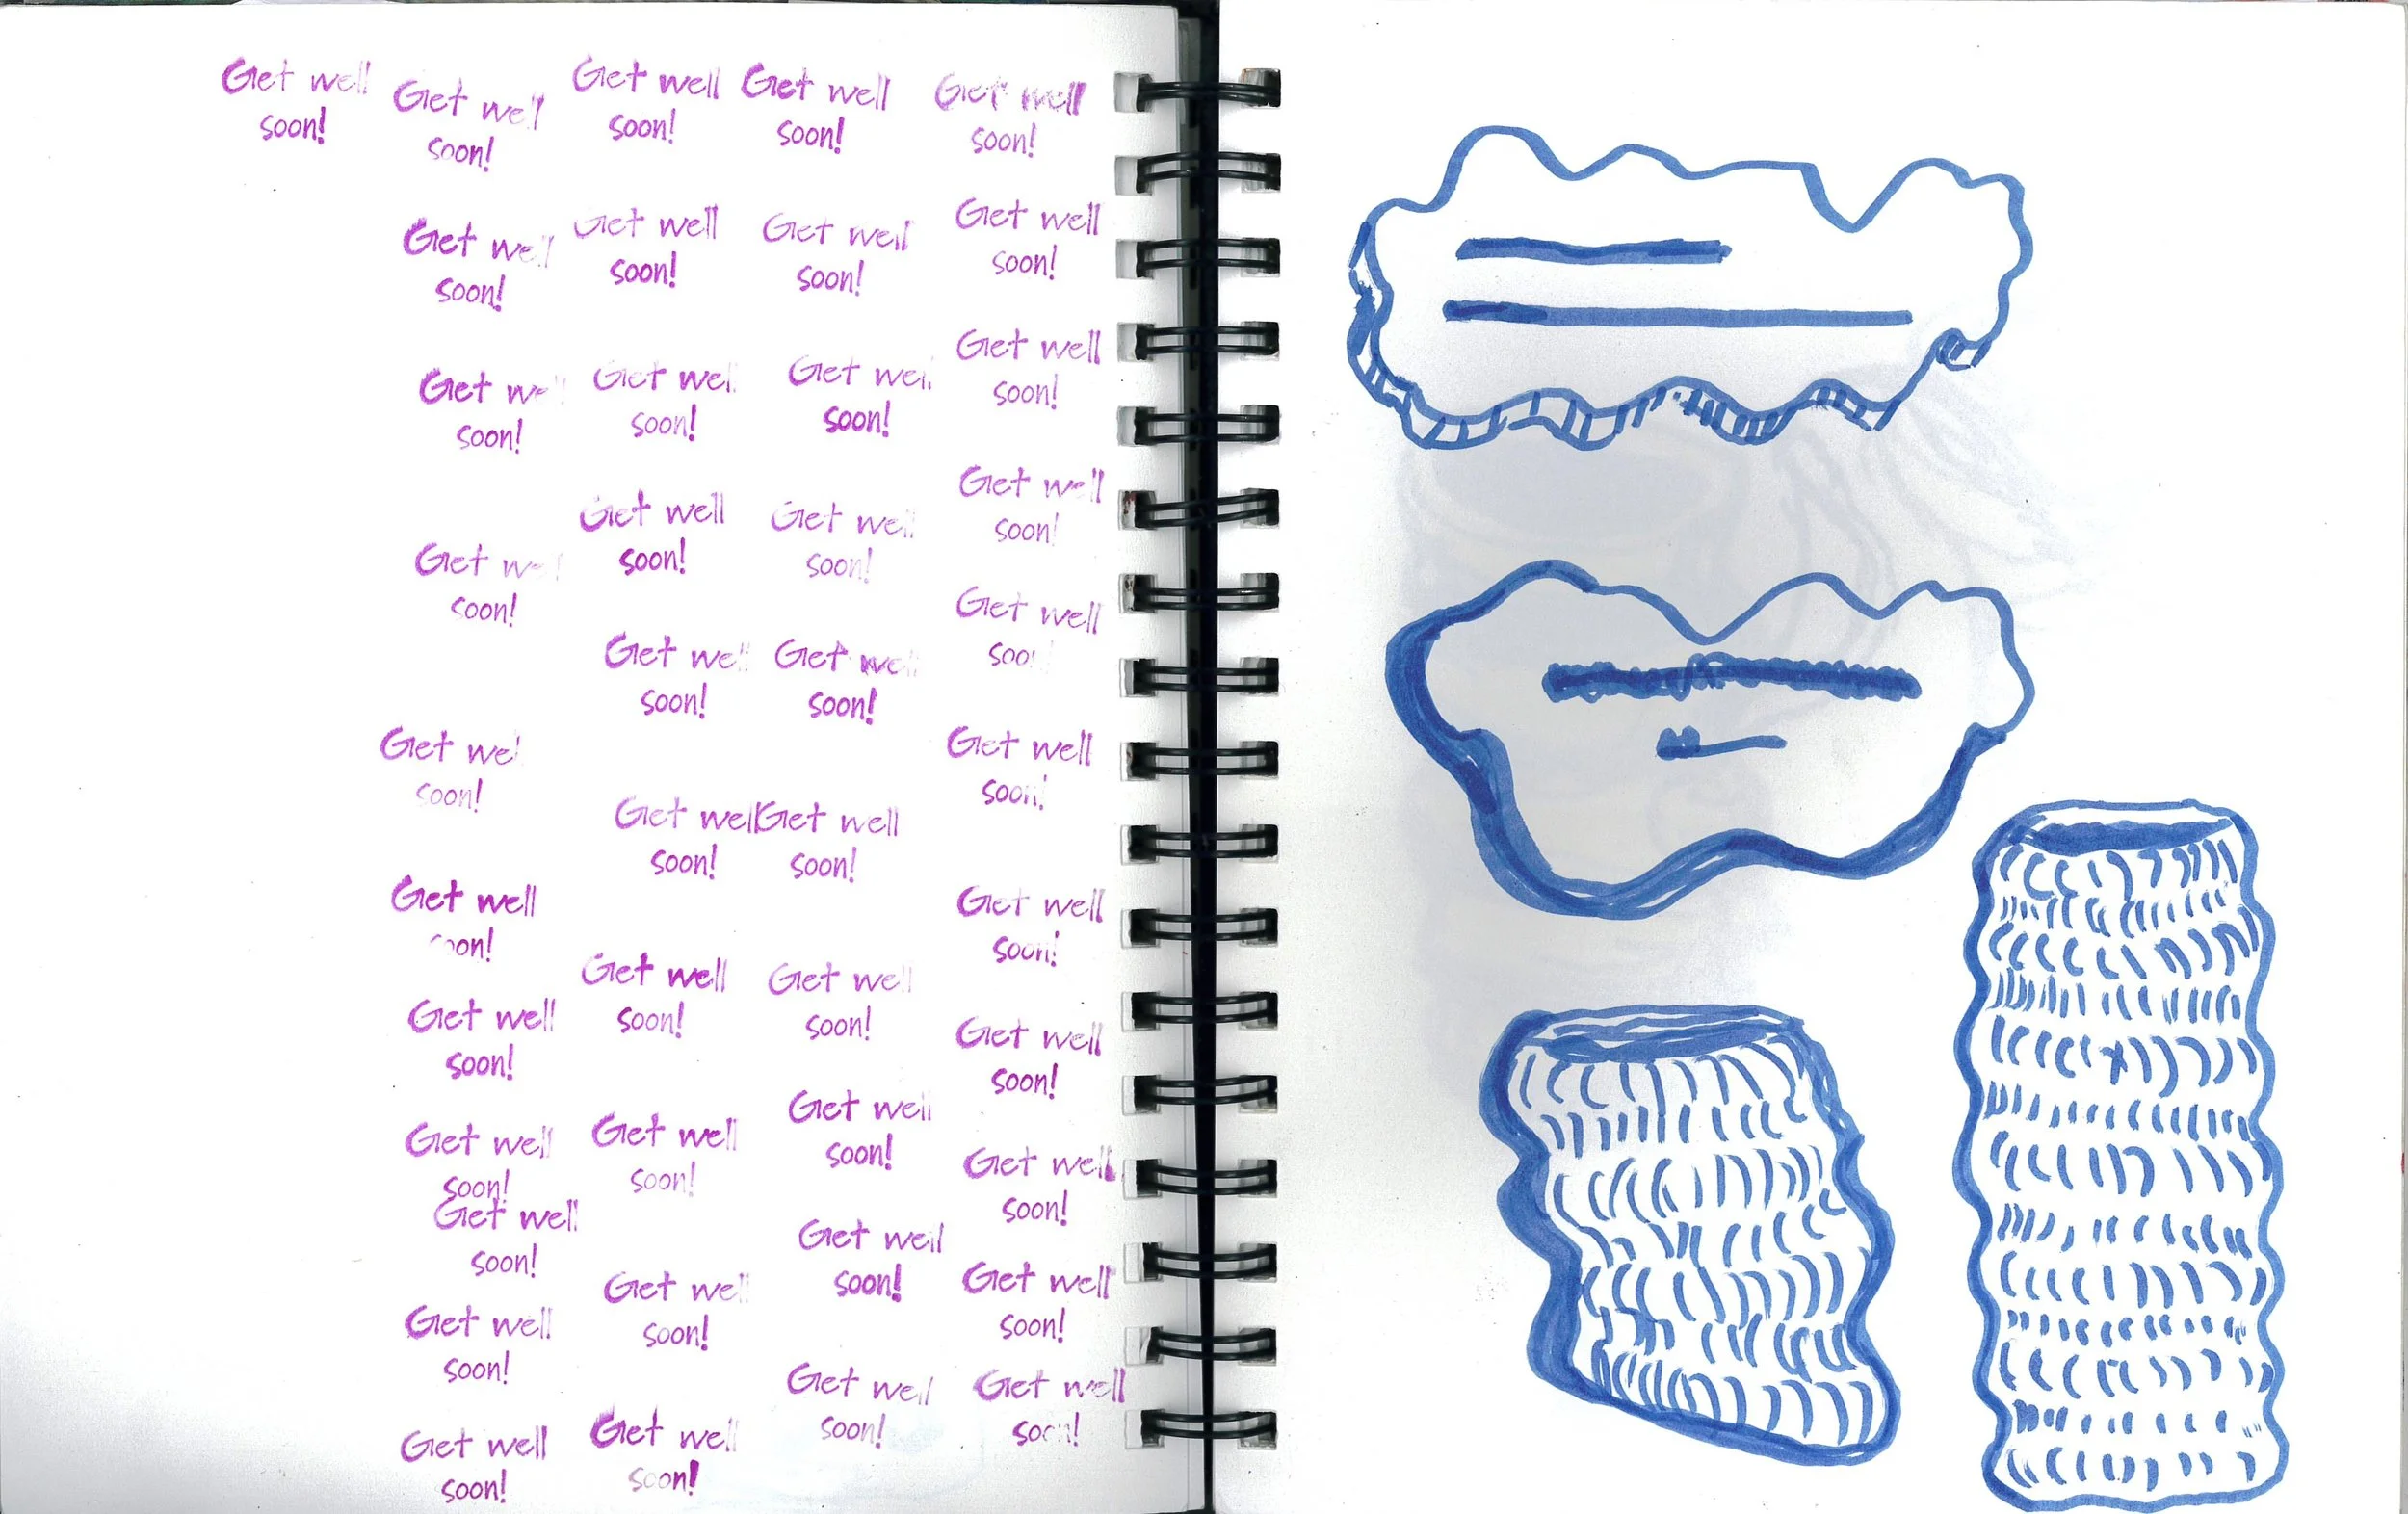 Get well
soon!
Get well
soon!
Get well
soon!
Get well
soon!
Get well
soon!
Get well
soon!
Get well
soon!
Get well
soon!
Get well
soon!
Get well
soon!
Get well
soon!
Get well
soon!
Get well
soon!
Get well
soon!
Get well
soon!
Get well
soon!
Get well
soon!
Get well
soon!
Get well
soon!
Get well
soon!
Get well
soon!
Get well
soon!
Get well
soon!
Get well
soon!
Get well
soon!
Get well
soon!
Get well
soon!
Get well
soon!
Get well
soon!
Get well
soon!
Get well
soon!
Get well
soon!
Get well
soon!
Get well
soon!
Get well
soon!
Get well
soon!
Get well
soon!
Get well
soon!
Get well
soon!
Get well
soon!
Get well
soon!
Get well
soon!
Get well
soon!